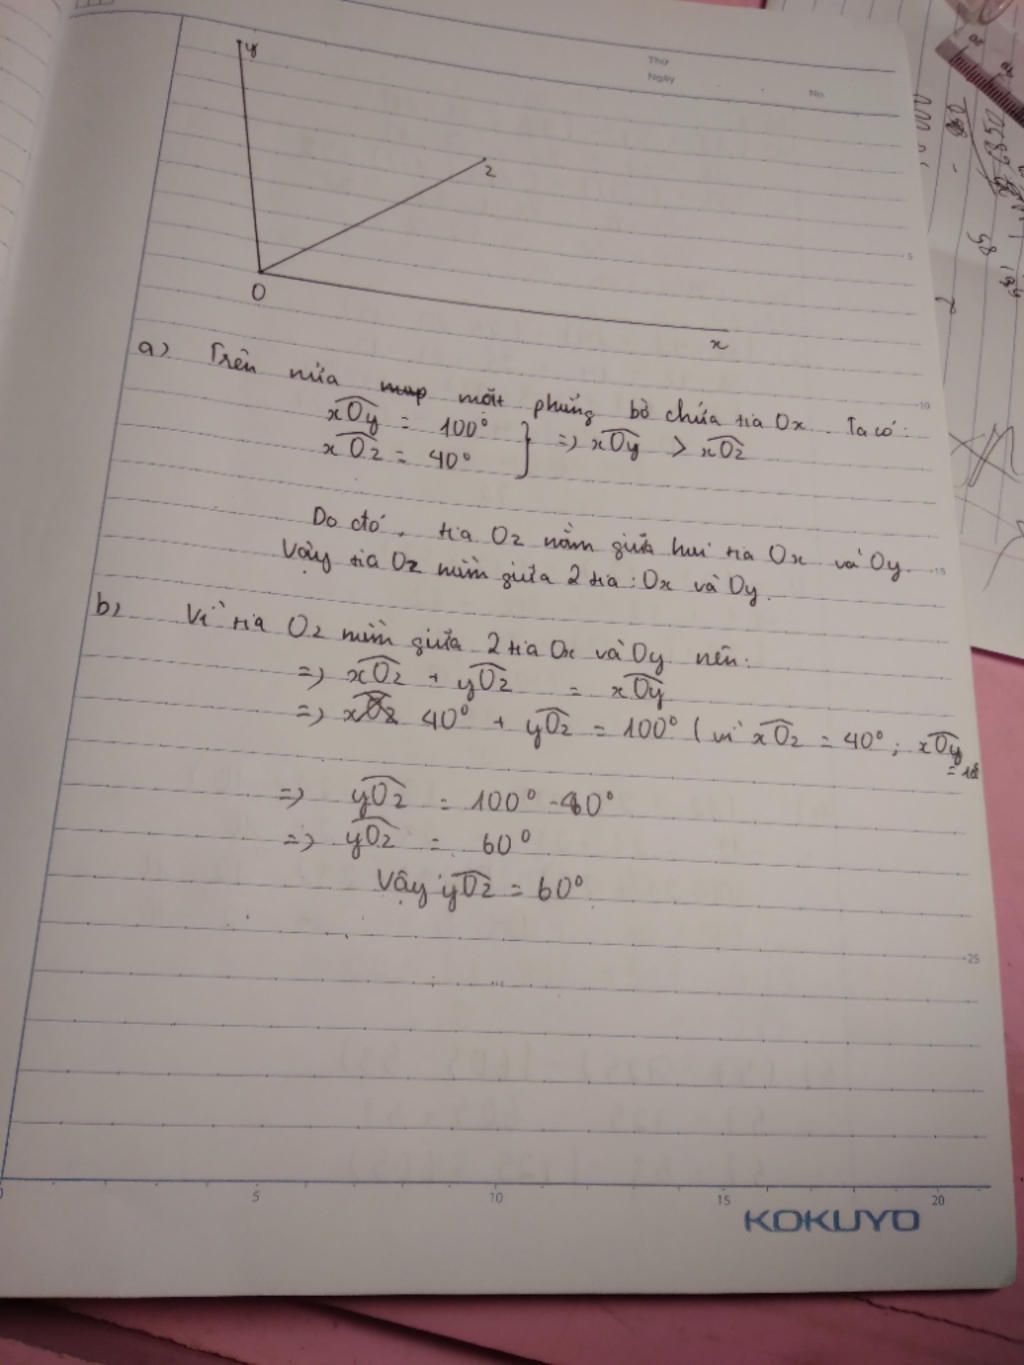 Thứ
Ngày
No.
y
z
O
x
a) Trên nửa map mặt phẳng bờ chứa tia Ox. Ta có:
xOy = 100°
xOz = 40° } => xOy > xOz
Do đó, tia Oz nằm giữa hai tia Ox và Oy.
Vậy tia Oz nằm giữa 2 tia: Ox và Oy.
b) Vì tia Oz nằm giữa 2 tia Ox và Oy nên:
=> xOz + yOz = xOy
=> xOz 40° + yOz = 100° (vì xOz = 40°; xOy
=> yOz = 100° - 40°
=> yOz = 60°
Vậy yOz = 60°
5
10
15
25
5 10 15 20
KOKUYO